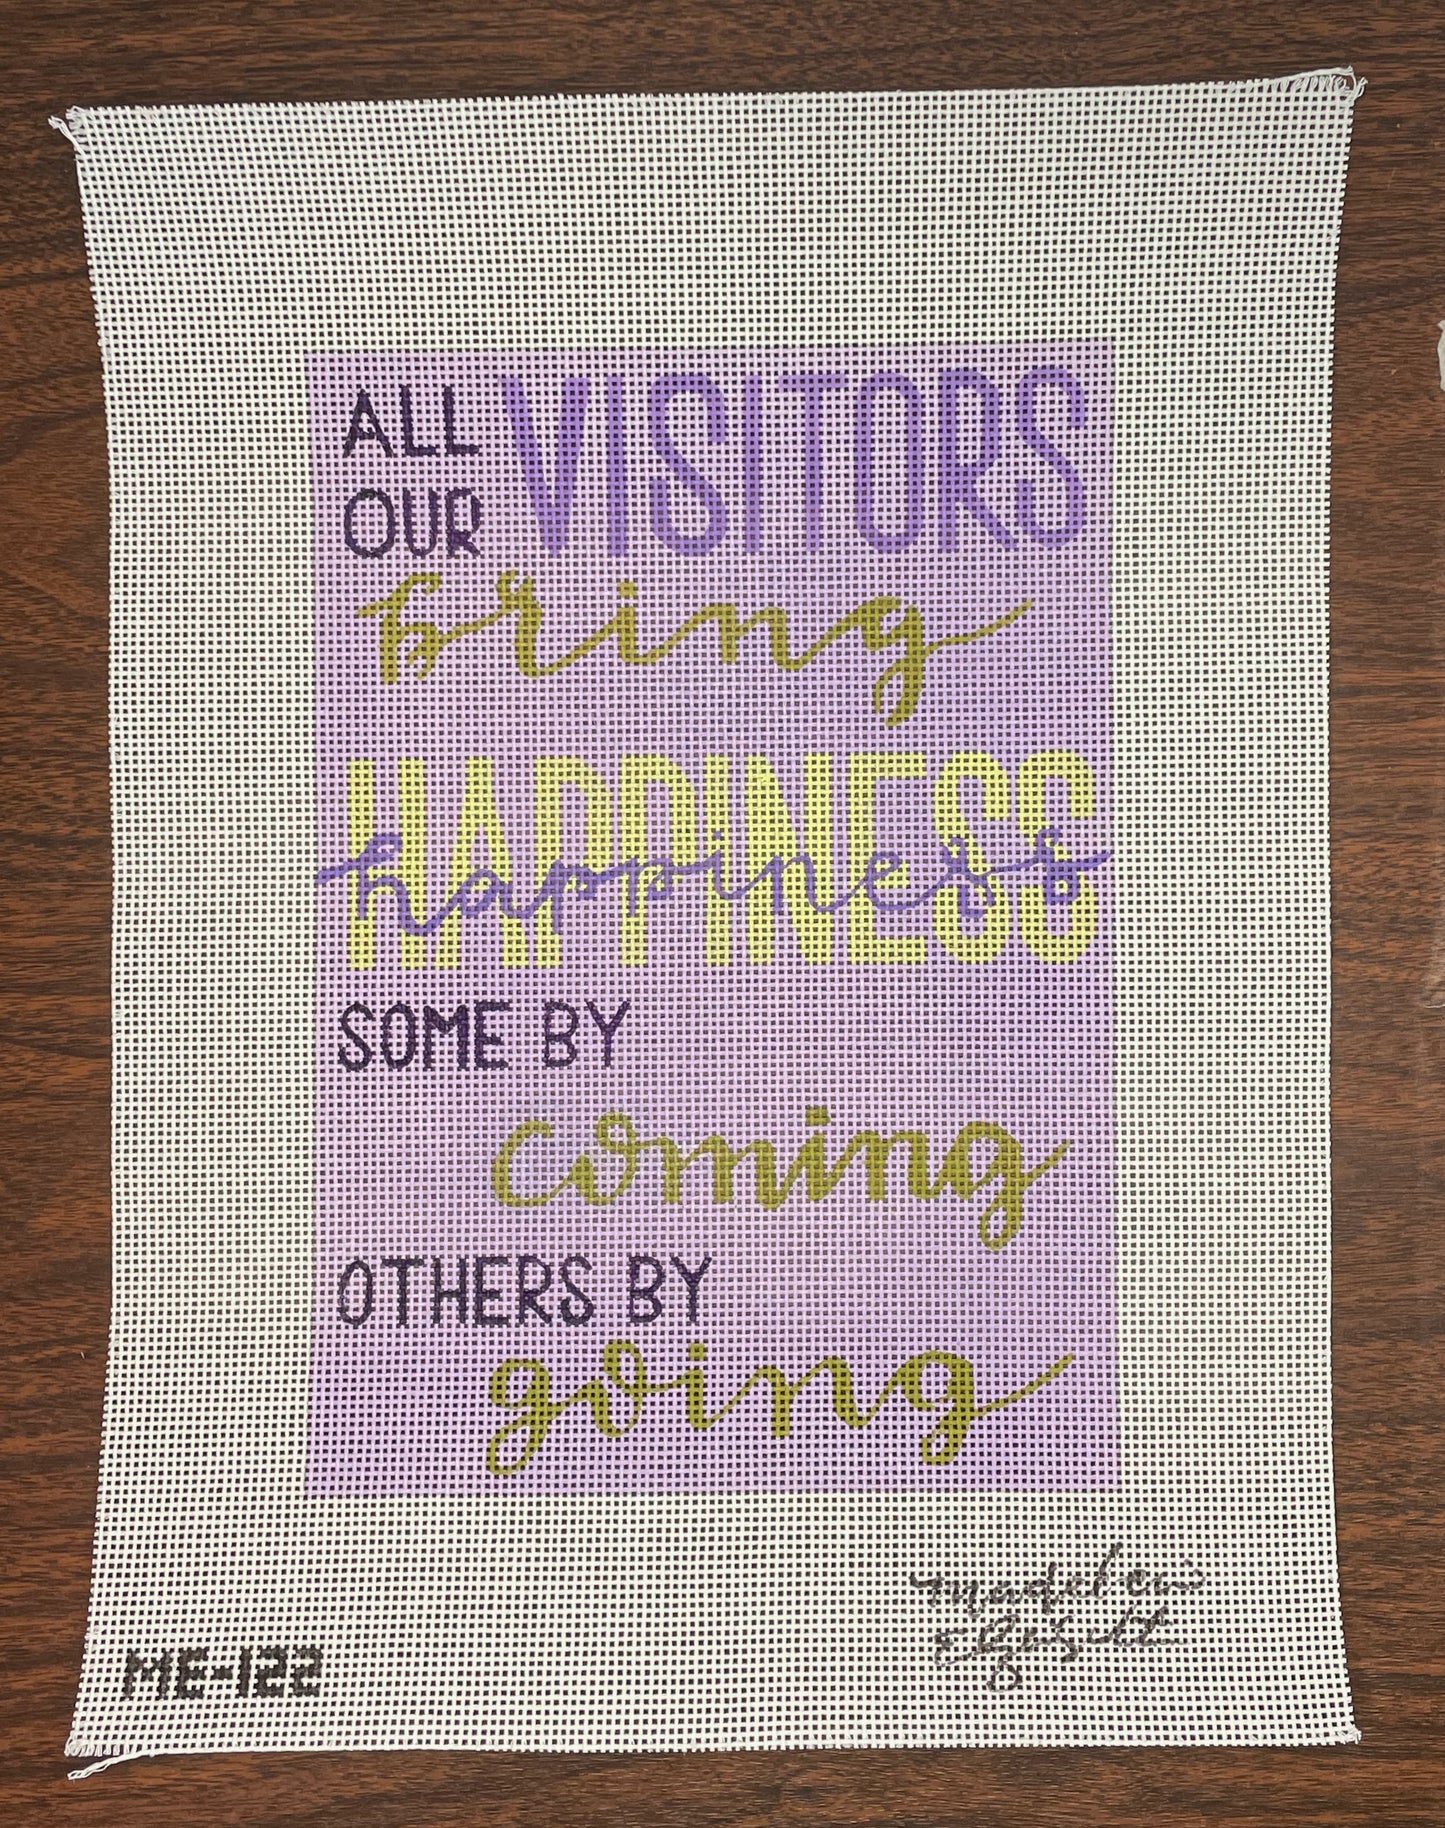 ALL VISITORS
OUR
bring
HAPPINESS
happiness
SOME BY
coming
OTHERS BY
going
madeleine
Elizabeth
ME-122